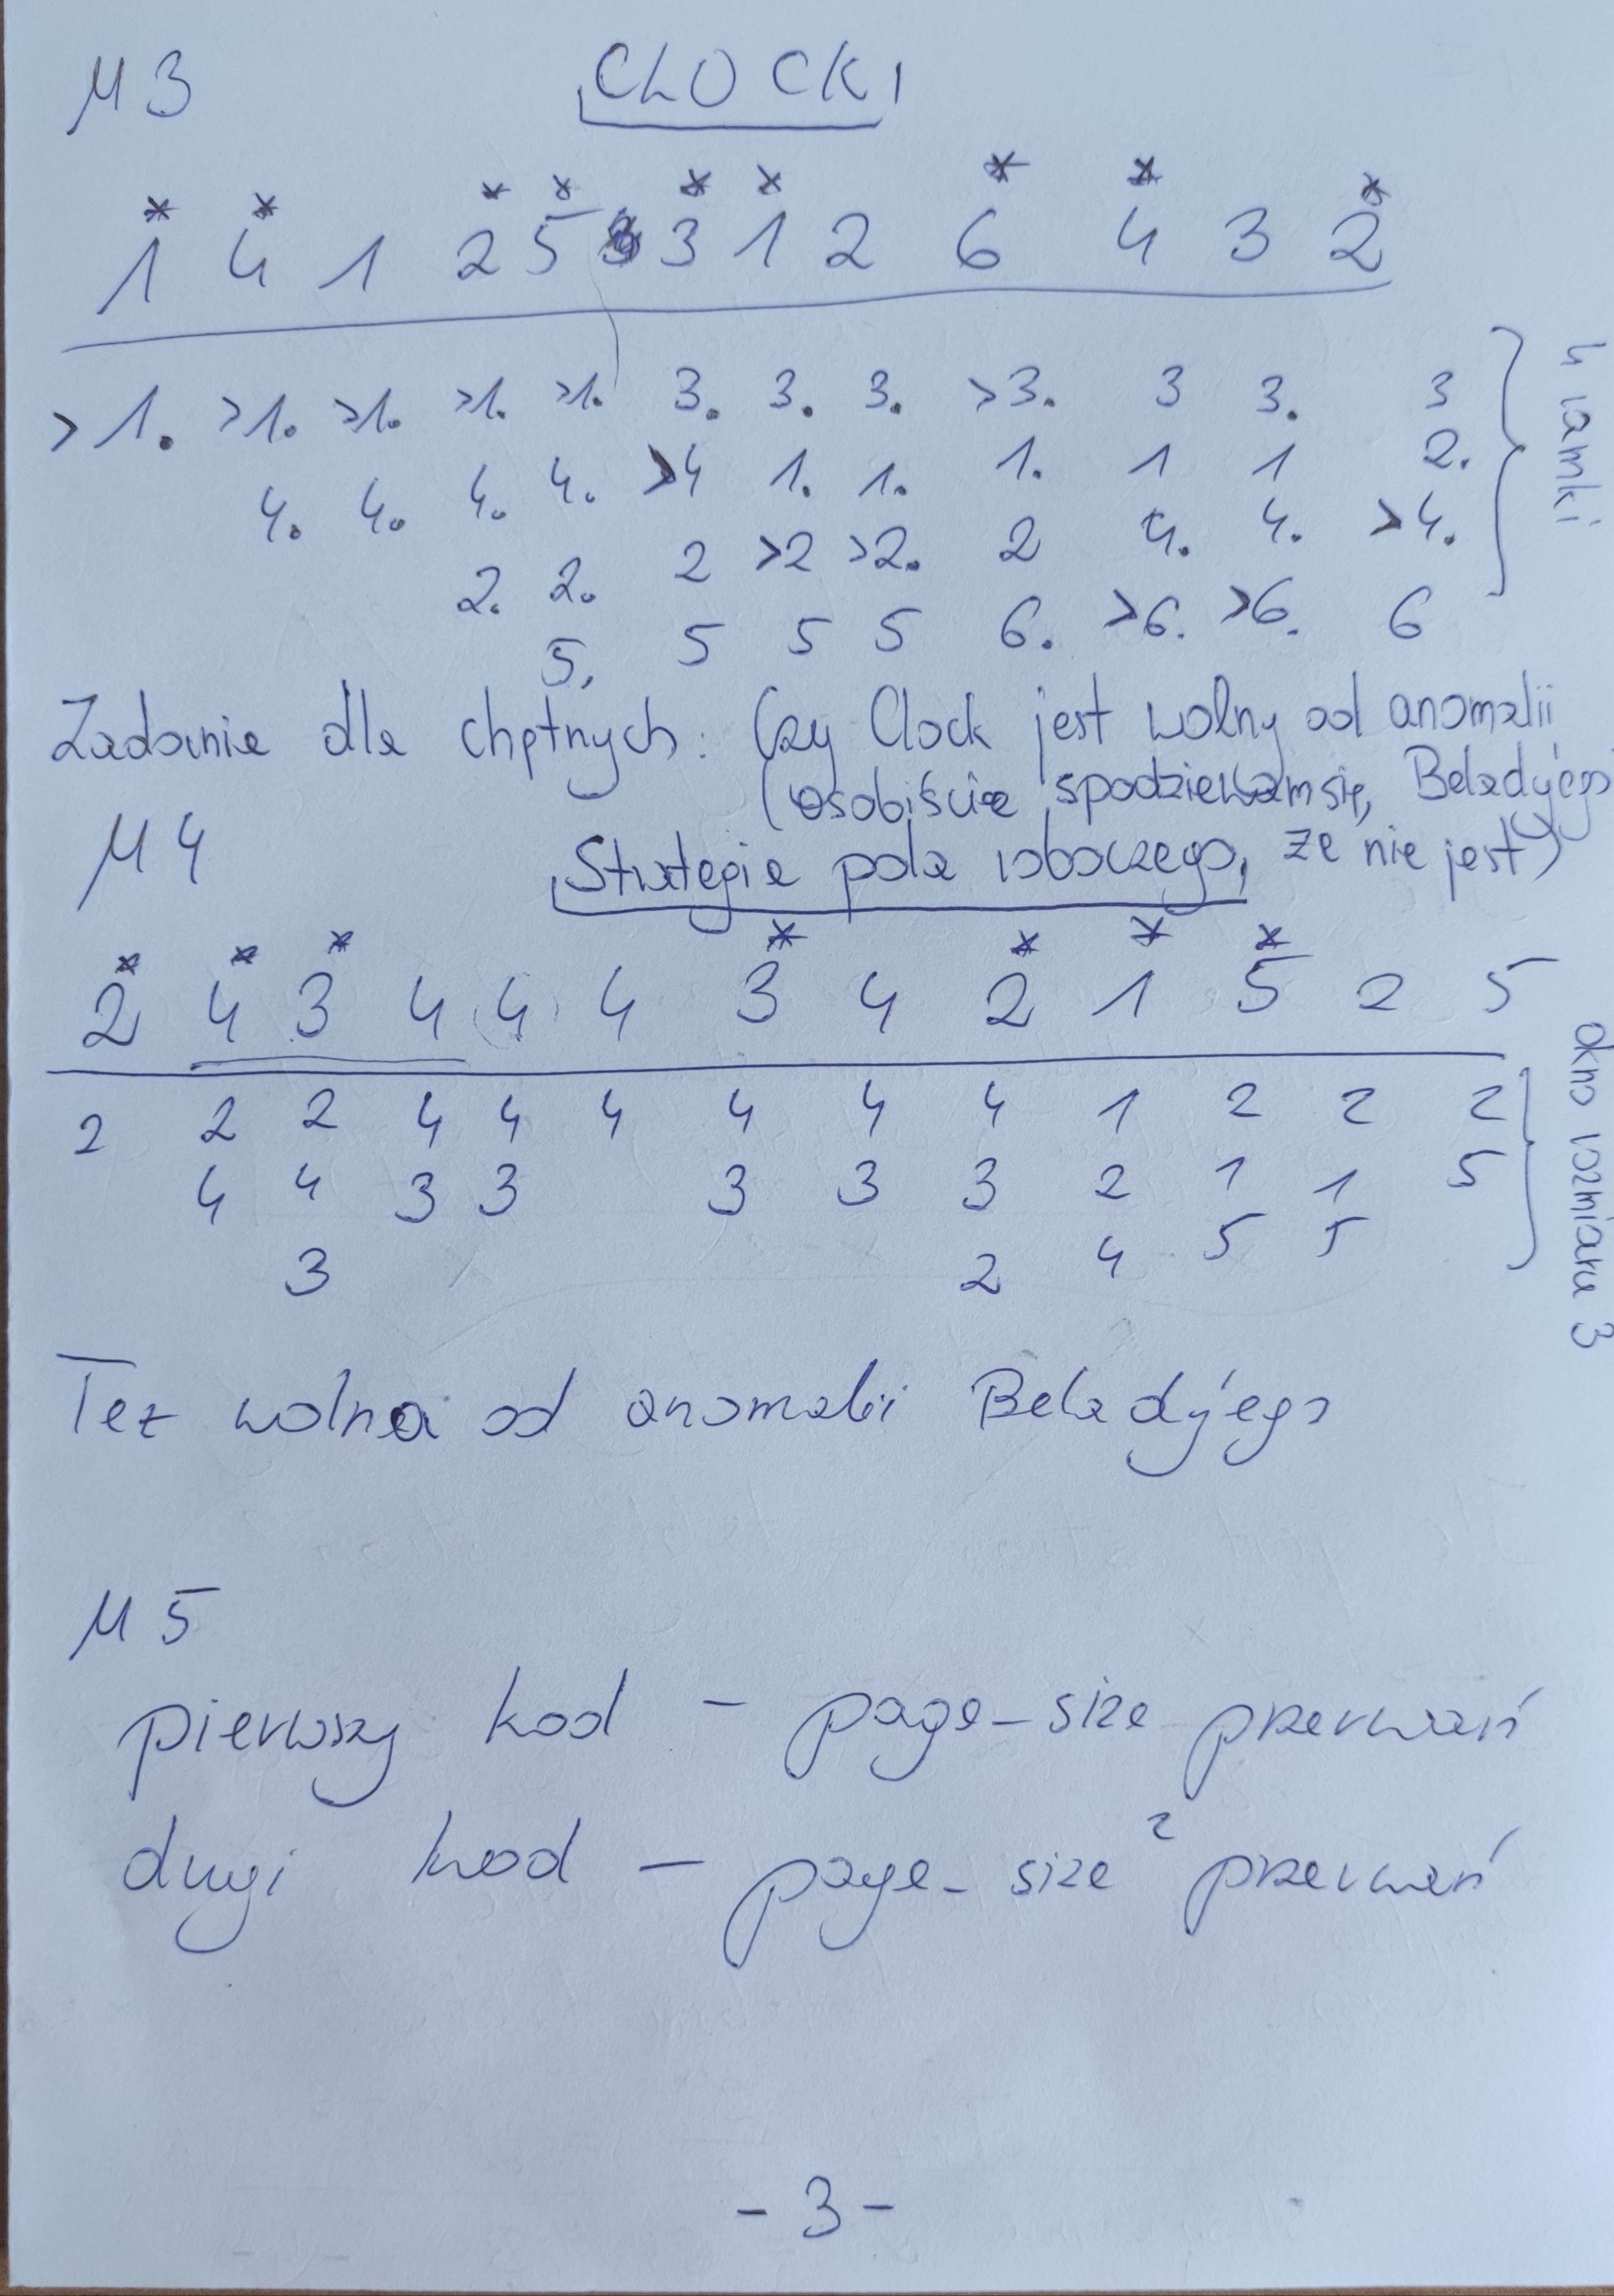 M3
CLOCK
* * * * * * * * *
1 4 1 2 5 3 1 2 6 4 3 2
>1. >1. >1. >1. >1. 3. 3. 3. >3. 3 3. 3
4. 4. 4. 4. >4 1. 1. 1. 1 1 2.
2. 2. 2 >2 >2. 2 4. 4. >4.
5. 5 5 5 6. >6. >6. 6
4 ramki
Zadanie dla chętnych: Czy Clock jest wolny od anomalii
Belady'ego
(osobiście spodziewam się,
że nie jest)
M4
Strategia pola roboczego
* * * * * * *
2 4 3 4 4 4 3 4 2 1 5 2 5
2 2 2 4 4 4 4 4 4 1 2 2 2
4 4 3 3 3 3 3 2 1 1 5
3 2 4 5 5
okno rozmiaru 3
Też wolna od anomalii Belady'ego
M5
pierwszy kod - page_size przerwań
drugi kod - page_size² przerwań
- 3 -